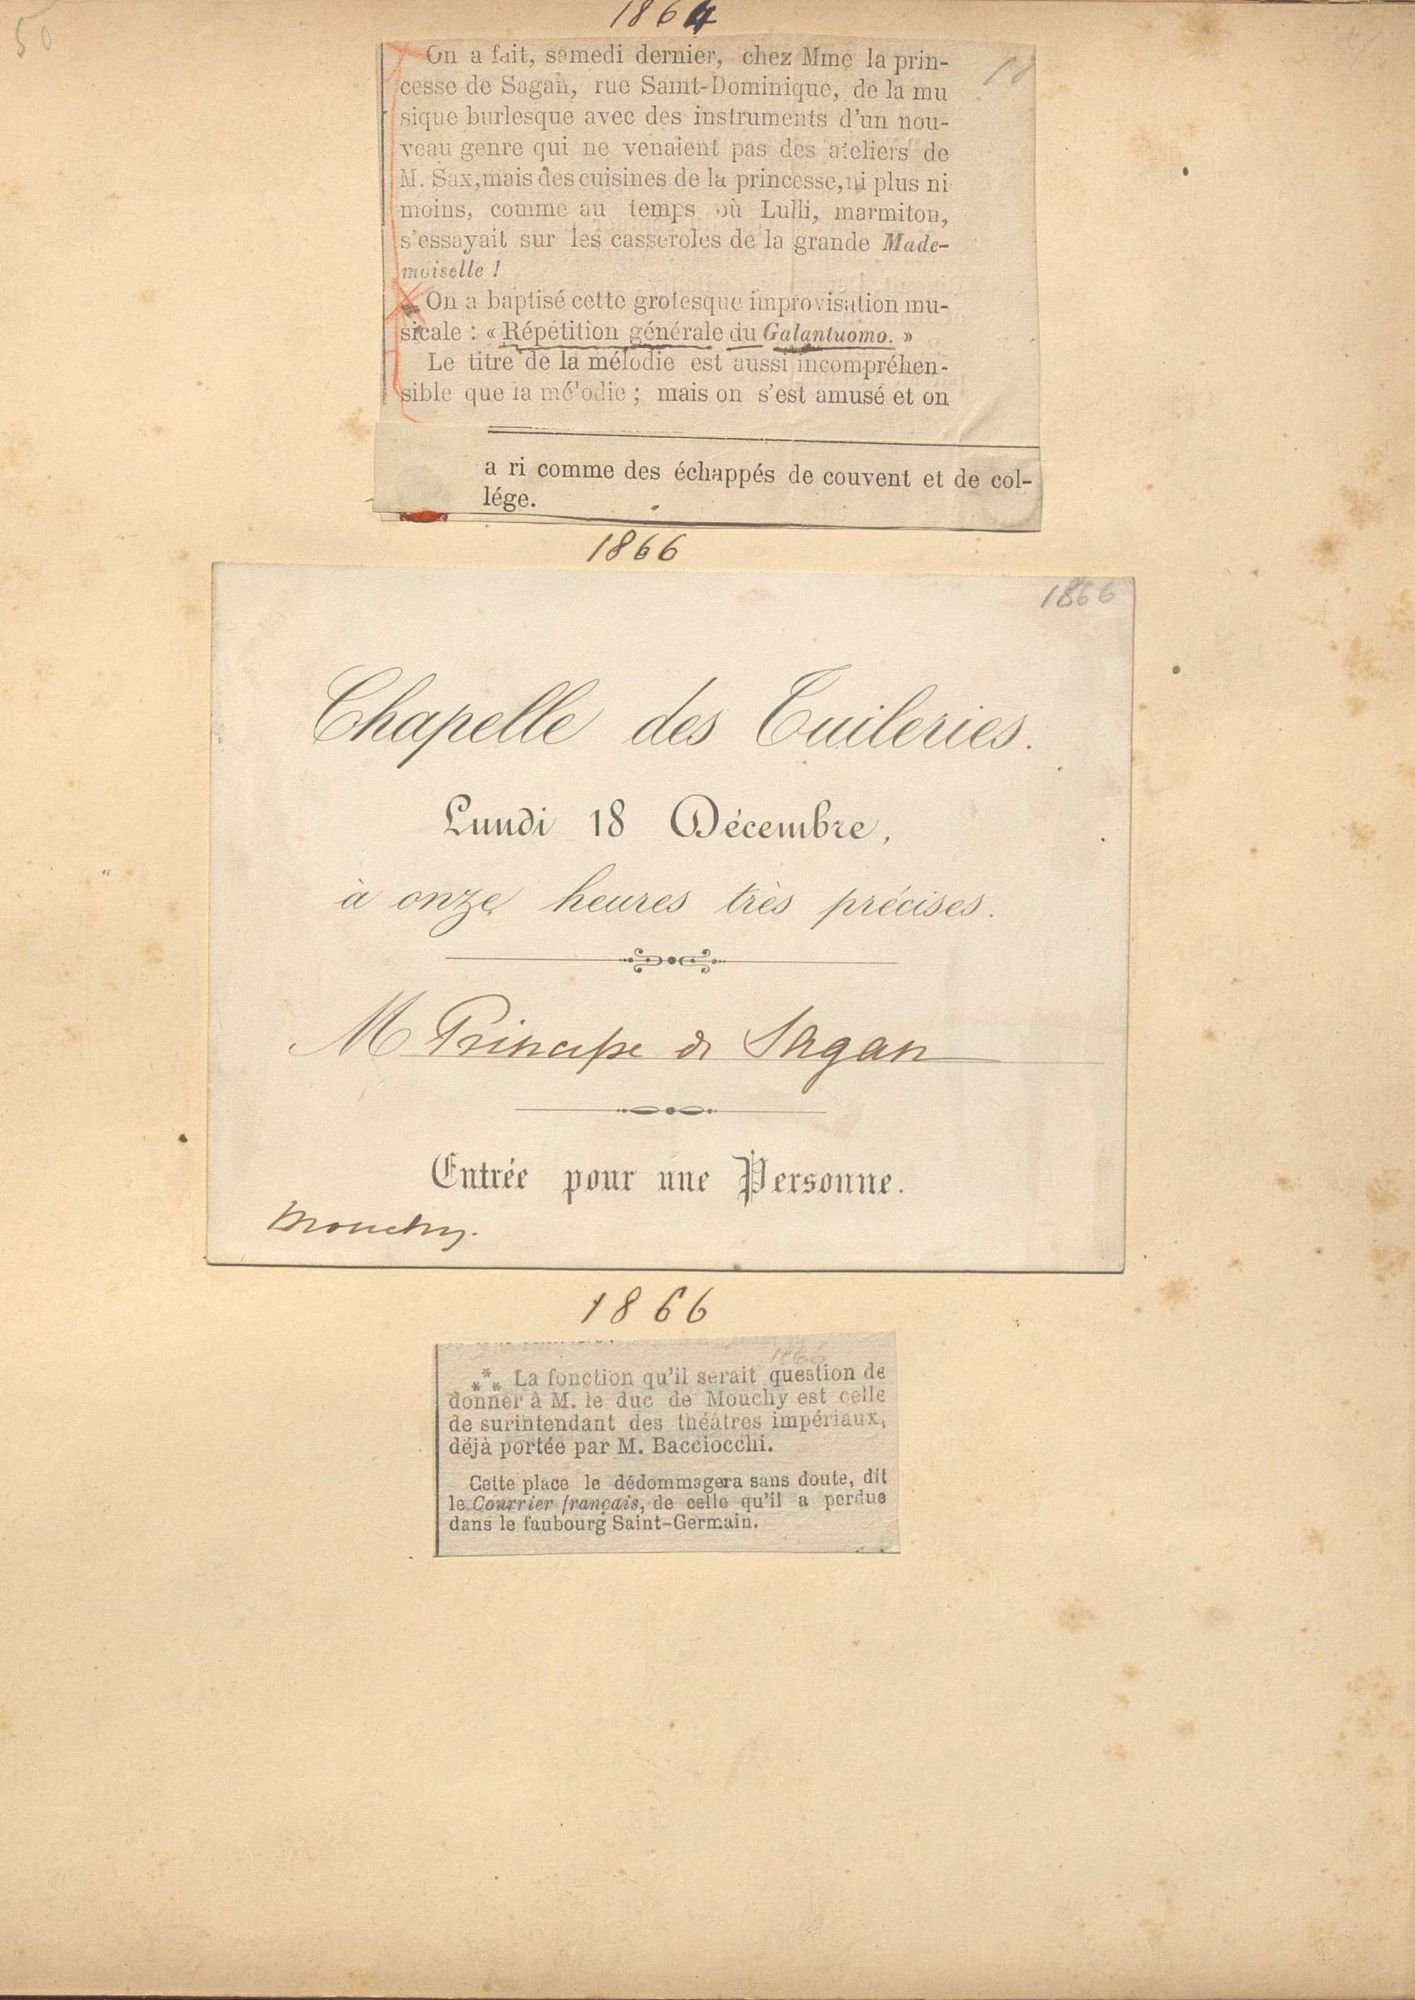 50
1864
On a fait, samedi dernier, chez Mme la prin-
cesse de Sagan, rue Saint-Dominique, de la mu
sique burlesque avec des instruments d'un nou-
veau genre qui ne venaient pas des ateliers de
M. Sax, mais des cuisines de la princesse, ni plus ni
moins, comme au temps où Lulli, marmiton,
s'essayait sur les casseroles de la grande Made-
moiselle !
On a baptisé cette grotesque improvisation mu-
sicale : « Répétition générale du Galantuomo. »
Le titre de la mélodie est aussi incompréhen-
sible que la mélodie ; mais on s'est amusé et on
a ri comme des échappés de couvent et de col-
lége.
1866
1866
Chapelle des Tuileries.
Lundi 18 Décembre,
à onze heures très précises.
M Principe de Sagan
Entrée pour une Personne.
Mouchy.
1866
1866
*** La fonction qu'il serait question de
donner à M. le duc de Mouchy est celle
de surintendant des théâtres impériaux,
déjà portée par M. Bacciocchi.
Cette place le dédommagera sans doute, dit
le Courrier français, de celle qu'il a perdue
dans le faubourg Saint-Germain.